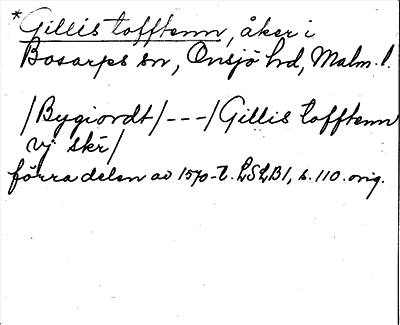 *Gillis tofftenn, åker i
Bosarps sn, Onsjö hd, Malm. l.
/Bygiordt/---/Gillis tofftenn
vj skr/
förra delen av 1570-t. LSLB1, s. 110. orig.